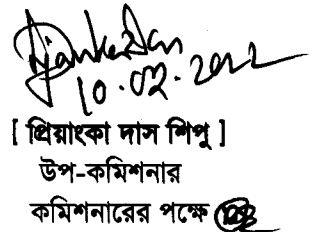 10.02.2022
[ প্রিয়াংকা দাস শিপু ]
উপ-কমিশনার
কমিশনারের পক্ষে